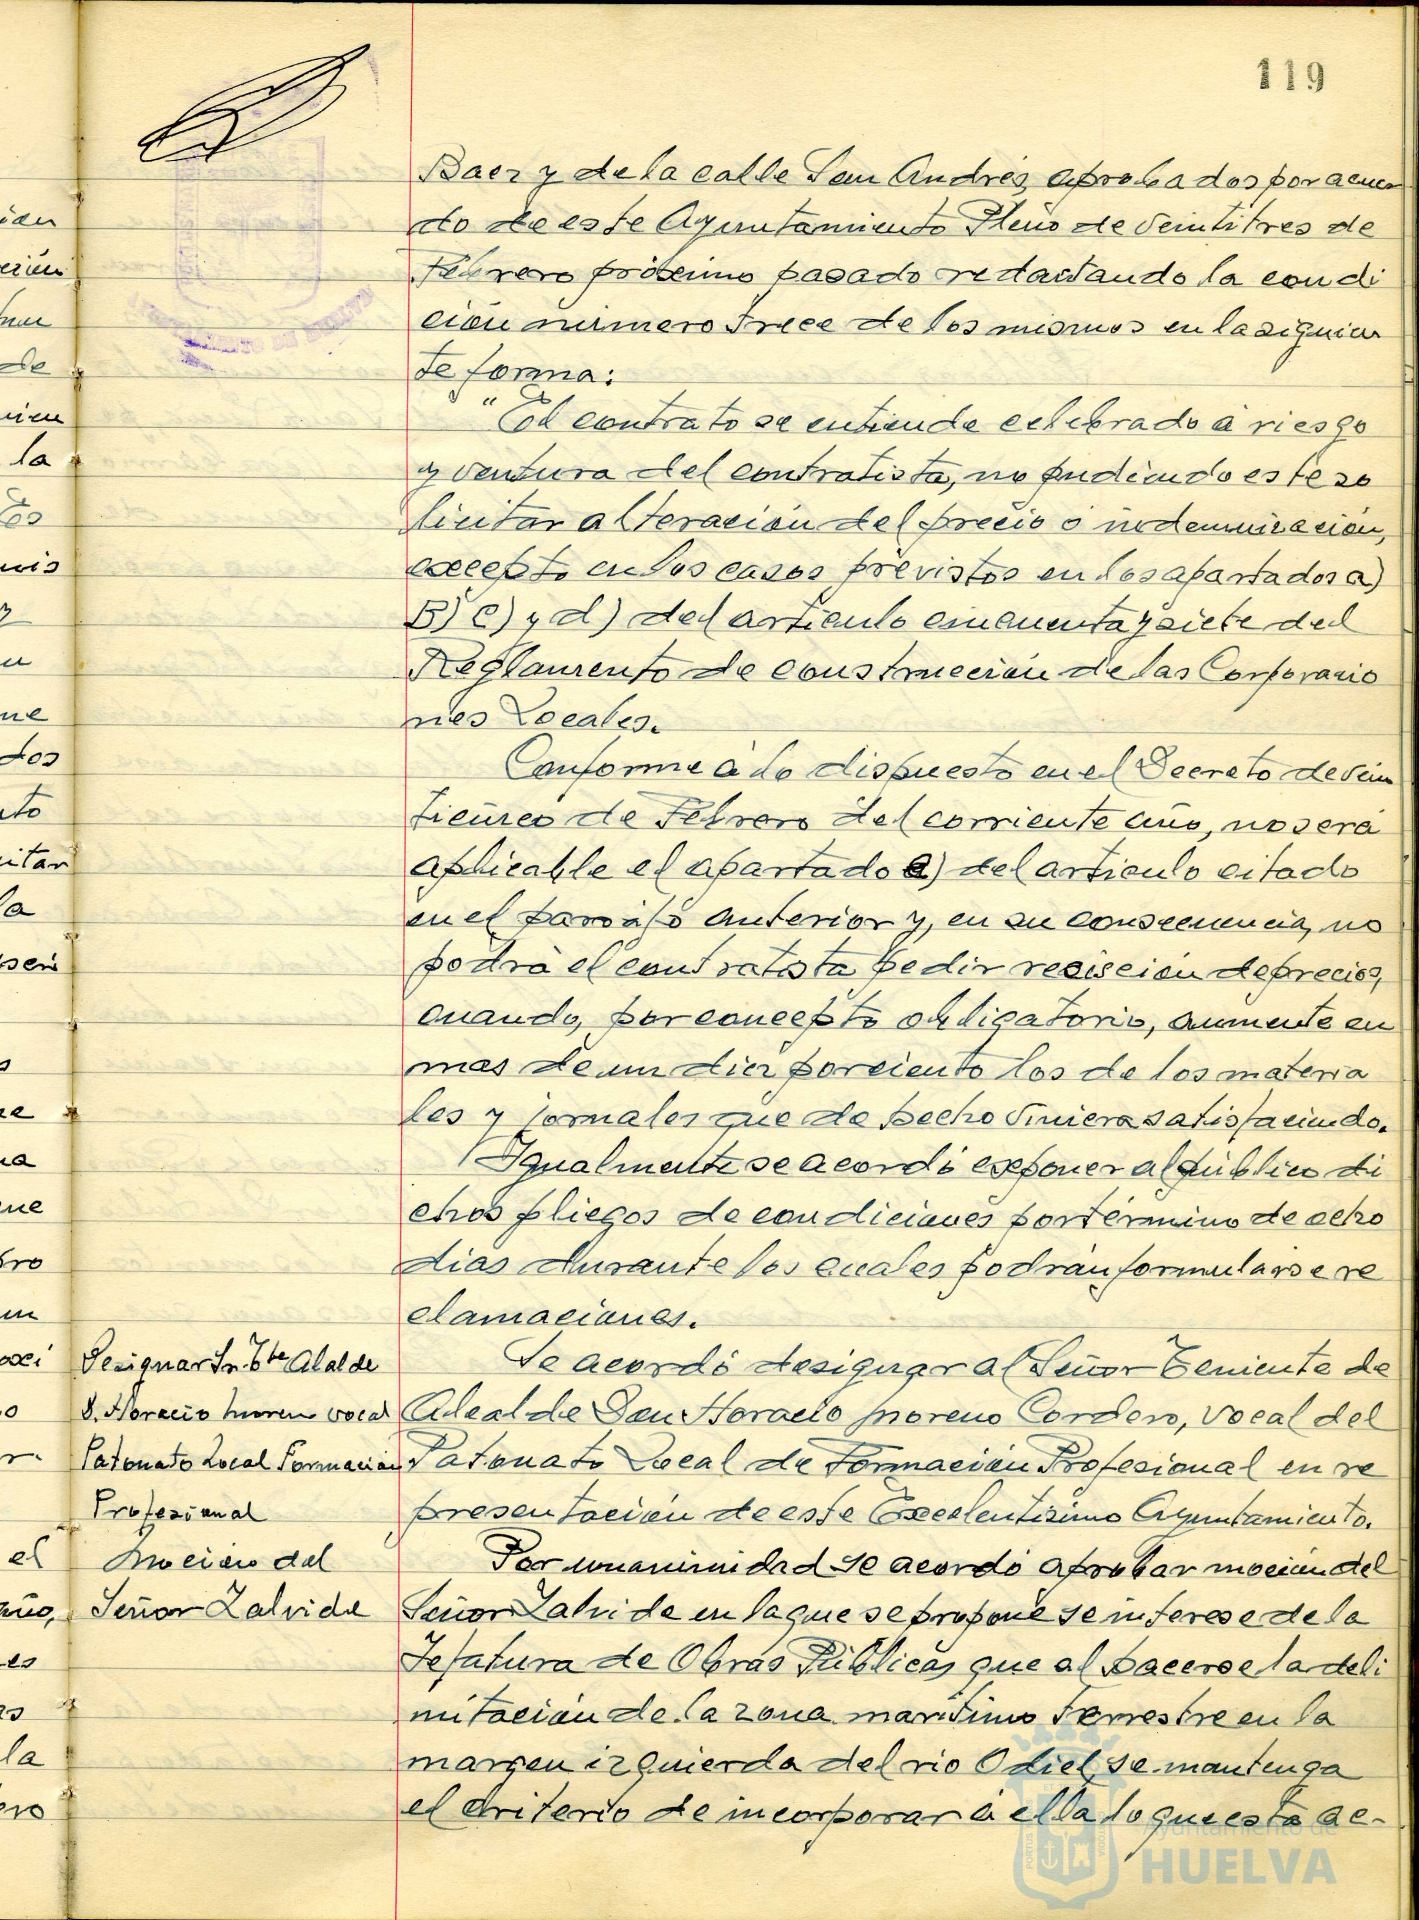 119
Baez y de la calle San Andrés, aprobados por acuer
do de este Ayuntamiento Pleno de veintitres de
Febrero próximo pasado redactando la condi
ción número trece de los mismos en la siguien
te forma:
"El contrato se entiende celebrado á riesgo
y ventura del contratista, no pudiendo este so
licitar alteración del precio o indemnización,
excepto en los casos previstos en los apartados a)
B) c) y d) del artículo cincuenta y siete del
Reglamento de construcción de las Corporacio
nes Locales.
Conforme á lo dispuesto en el Decreto de vein
ticinco de Febrero del corriente año, no será
aplicable el apartado c) del artículo citado
en el parrafo anterior y, en su consecuencia, no
podrá el contratista pedir rescisción de precios,
cuando, por concepto obligatorio, aumente en
mas de un diez por ciento los de los materia
les y jornales que de hecho viniera satisfaciendo.
Igualmente se acordó exponer al público di
chos pliegos de condiciones por término de ocho
dias durante los cuales podrán formularse re
clamaciones.
Designar Sr. Tte Alalde
D. Horacio Moreno vocal
Patonato Local Formación
Profesional
Se acordó designar al Señor Teniente de
Alcalde Don Horacio Moreno Cordero, vocal del
Patonato Local de Formación Profesional en re
presentación de este Excelentísimo Ayuntamiento.
Moción del
Señor Zalvide
Por unanimidad se acordó aprobar moción del
Señor Zalvide en la que se propone se interese de la
Jefatura de Obras Públicas, que al hacerse la deli
mitación de la zona marítimo terrestre en la
margen izquierda del rio Odiel, se mantenga
el criterio de incorporar á ella lo que está ac-
Ayuntamiento de
HUELVA